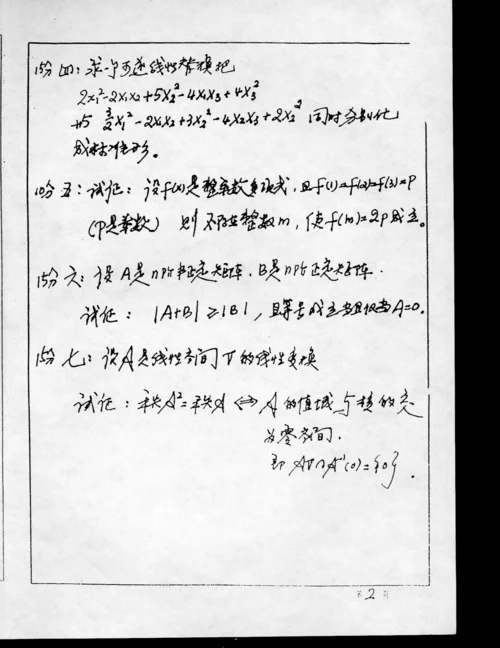 15分 四：求一可逆线性替换把
2x₁²-2x₁x₂+5x₂²-4x₁x₃+4x₃²
与 3/2x₁²-2x₁x₃+3x₂²-4x₂x₃+2x₃² 同时分别化
成标准形。
10分 五：试证：设f(x)是整系数多项式，且f(1)=f(2)=f(3)=P
(P是素数) 则不存在整数m，使f(m)=2P成立。
15分 六：设A是n阶半正定矩阵，B是n阶正定矩阵.
试证：|A+B|≥|B|，且等号成立当且仅当A=0。
15分 七：设A是线性空间V的线性变换
试证：秩A²=秩A ⇔ A的值域与核的交
为零空间.
即 AV∩A⁻¹(0)={0}.
第 2 页